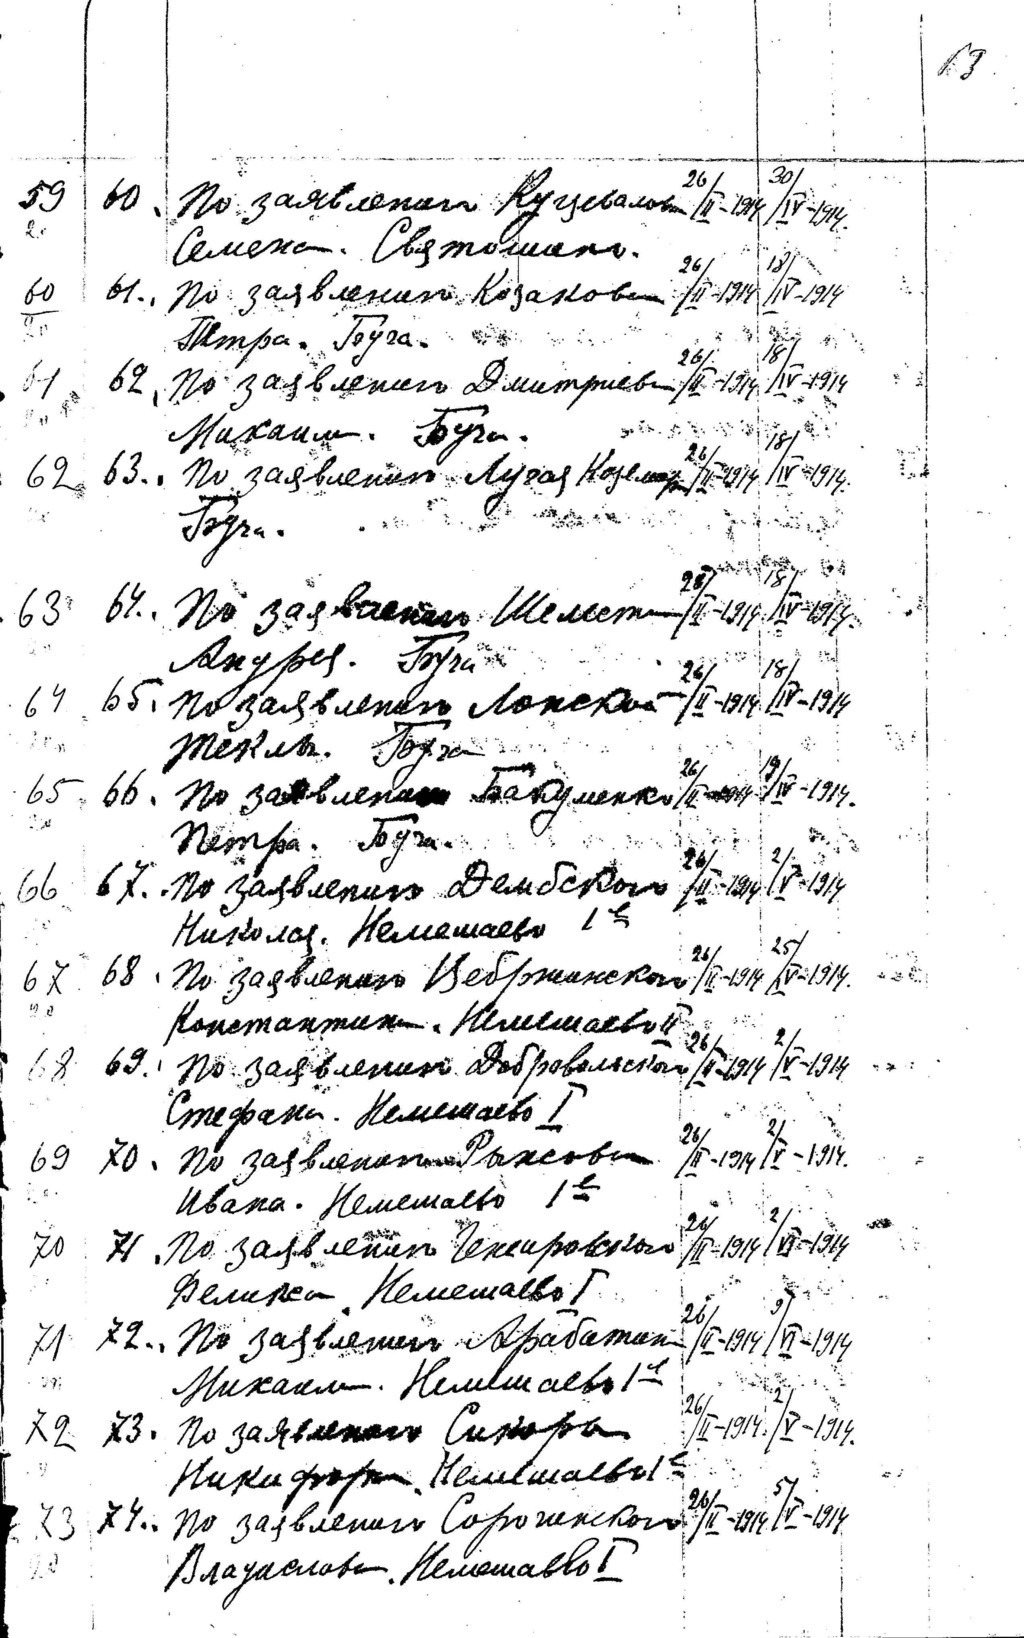 13
59 60. По заявлению Куцевалова 26/II-1914 30/IV-1914.
Семена. Святошино.
60 61. По заявлению Козакова 26/II-1914 18/IV-1914
Петра. Буча.
61 62. По заявлению Дмитриева 26/II-1914 18/IV-1914
Михаила. Буча.
62 63. По заявлению Лугая 26/II-1914 18/IV-1914.
Буча.
63 64. По заявлению Шемета 26/II-1914 18/IV-1914.
Андрея. Буча
64 65. По заявлению Лонской 26/II-1914 18/IV-1914
Теклы. Буча
65 66. По заявлению Бакуменко 26/II-1914 19/IV-1914.
Петра. Буча.
66 67. По заявлению Дембского 26/II-1914 2/V-1914
Николая. Немешаево 1е
67 68. По заявлению Цебржинского 26/II-1914 25/V-1914.
Константина. Немешаево II
68 69. По заявлению Добровольского 26/II-1914 2/V-1914
Стефана. Немешаево I
69 70. По заявлению 26/II-1914 2/V-1914.
Ивана. Немешаево 1е
70 71. По заявлению 26/II-1914 2/VI-1914
Феликса. Немешаево I
71 72. По заявлению Арабатин 26/II-1914 9/VI-1914
Михаила. Немешаево 1е
72 73. По заявлению Сикоры 26/II-1914. 2/V-1914.
Никифора. Немешаево 1е
73 74. По заявлению Сороченского 26/II-1914 5/V-1914
Владислава. Немешаево I